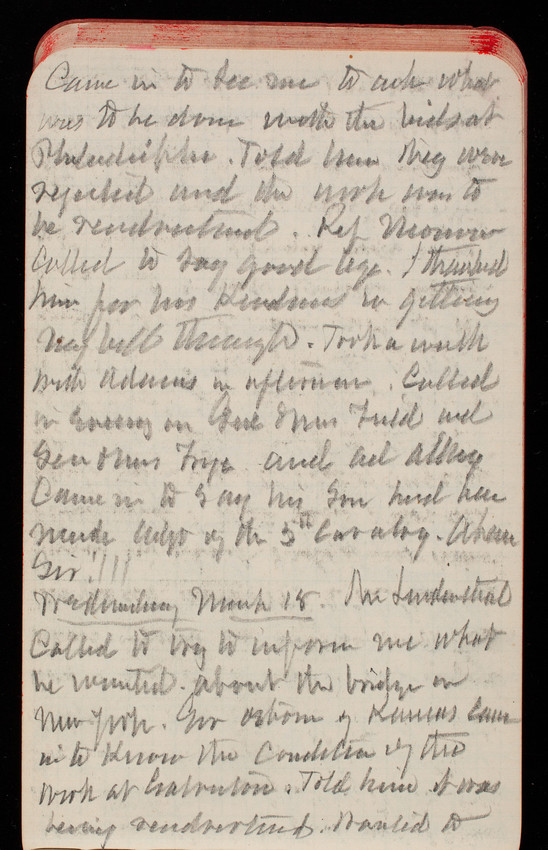 Came in to see me to ask what
was to be done with the bids at
Philadelphia. Told him they were
rejected and the work was to
be readvertised. Rep
Called to say good bye. I thanked
him for his kindness in getting
my bill through. Took a walk
with Adams in afternoon. Called
in evening on Genl & Mrs Field and
Gen & Mrs Frye and
Came in to say his son had been
made Adjt of the 5th Cavalry. Ahem
Sir!!!!
Wednesday March 18.
Called to try to inform me what
he wanted about the bridge in
New York. Gov Osborn of Kansas came
in to know the condition of the
work at Galveston. Told him it was
being readvertised. Wanted to